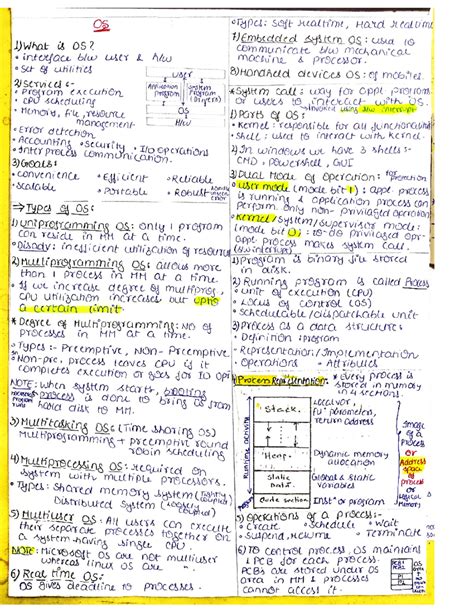 OS
1) What is OS?
• interface b/w user & h/w
• set of utilities
2) Services:-
• program execution
• CPU scheduling
• Memory, file, resource
management
• Error detection
• Accounting • Security • I/O operations
• Inter process communication
user
Application
program
System
program
OS
H/w
3) Goals:
• convenience • Efficient • Reliable
• Scalable • Portable • Robust
⇒ Types of OS:
1) Uniprogramming OS: only 1 program
can reside in MM at a time.
Disadv: inefficient utilization of resource
2) Multiprogramming OS: allows more
than 1 process in MM at a time.
• If we increase degree of multiprog.,
CPU utilization increases but upto
a certain limit
* Degree of Multiprogramming: NO of
processes in MM at a time.
• Types:- Preemptive, NON-Preemptive
• Non-pre. process leaves CPU if it
completes execution or goes for IO opn
NOTE: when system starts, booting
process is done to bring OS from
hard disk to MM.
3) Multitasking OS: (Time sharing OS)
Multiprogramming + preemptive round
robin scheduling
4) Multiprocessing OS: Required on
system with multiple processors.
• Types: Shared memory system (Tightly coupled)
Distributed system (loosely coupled)
5) Multiuser OS: All users can execute
their separate processes together on
a system having single CPU
NOTE: Microsoft OS are not multiuser
whereas linux OS are.
6) Real time OS:
OS gives deadline to processes.
• Types: Soft Realtime, Hard Realtime
7) Embedded system OS: used to
communicate b/w mechanical
machine & processor.
8) Handheld devices OS: of mobiles.
* System call: way for appl. programs
or users to interact with OS.
invoked using s/w interrupt
1) Parts of OS:
• kernel: responsible for all functionalities
• shell: used to interact with kernel
2) In windows we have 3 shells:-
CMD, powershell, GUI
3) Dual Mode of Operation: for protection
• user mode (mode bit 1): appl. process
is running & application process can
perform only non-privilaged operation
• Kernel/system/supervisor mode:
(mode bit 0): to do privilaged opr.
appl process makes system call.
(s/w interrupt)
1) program is binary file stored
in disk.
2) Running program is called Process
• unit of execution (CPU)
• Locus of control (OS)
• schedulable/dispatchable unit
3) Process as a data structure:
• Definition: program
• Representation/Implementation
• Operations • Attributes
4) Process Representation: • Every process is
stored in memory
in 4 sections.
Stack.
fn parameters,
return address
Heap
Dynamic memory
allocation
static
data
Global & static
variables
Code section
Instn or program
Runtime
Image
of a
process
or
Address
space of
process
5) Operations of a process:-
• Create • Schedule • wait
• suspend, resume • Terminate
6) To control process, OS maintains
1 PCB for each process.
PCBs are stored under OS
area in MM & processes
cannot access it.